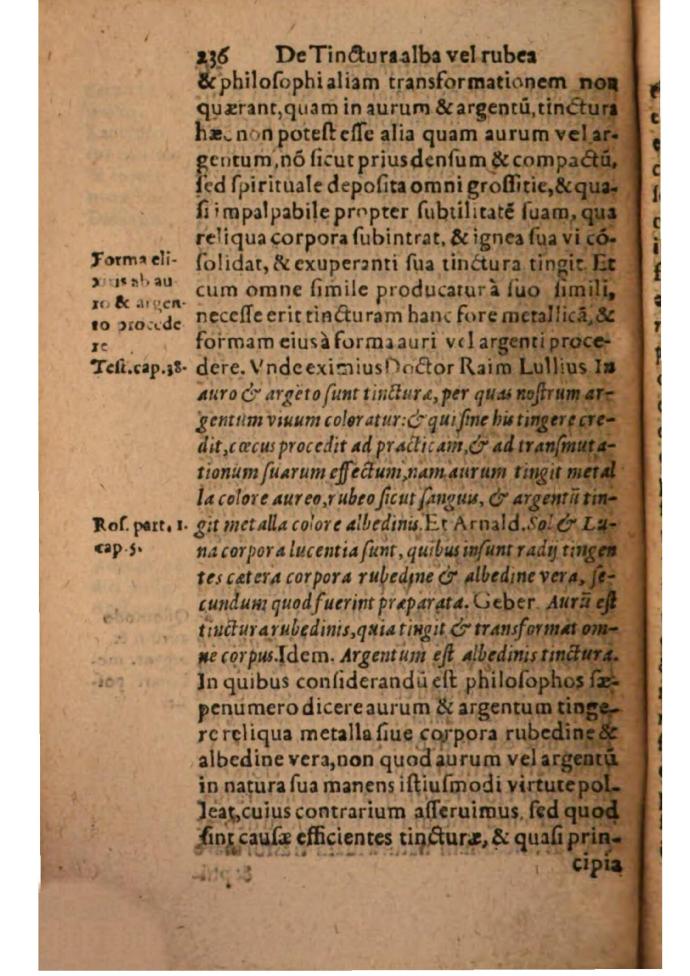 236 De Tinctura alba vel rubea
& philoſophi aliam transformationem non
quærant, quam in aurum & argentũ, tinctura
hæc non poteſt eſſe alia quam aurum vel ar-
gentum, nõ ſicut prius denſum & compactũ,
ſed ſpirituale depoſita omni groſſitie, & qua-
ſi impalpabile propter ſubtilitatẽ ſuam, qua
reliqua corpora ſubintrat, & ignea ſua vi cõ-
ſolidat, & exuperanti ſua tinctura tingit. Et
cum omne ſimile producatur à ſuo ſimili,
neceſſe erit tincturam hanc fore metallicã, &
formam eius à forma auri vel argenti proce-
dere. Vnde eximius Doctor Raim Lullius In
auro & argẽto ſunt tincturæ, per quas noſtrum ar-
gentum viuum coloratur: & qui ſine his tingere cre-
dit, cœcus procedit ad practicam, & ad tranſmuta-
tionum ſuarum effectum, nam aurum tingit metal
la colore aureo, rubeo ſicut ſanguis, & argentũ tin-
git metalla colore albedinis. Et Arnald. Sol & Lu-
na corpora lucentia ſunt, quibus inſunt radij tingen
tes cætera corpora rubedine & albedine vera, ſe-
cundum quod fuerint præparata. Geber. Aurũ eſt
tinctura rubedinis, quia tingit & transformat om-
ne corpus. Idem. Argentum eſt albedinis tinctura.
In quibus conſiderandũ eſt philoſophos ſæ-
penumero dicere aurum & argentum tinge-
re reliqua metalla ſiue corpora rubedine &
albedine vera, non quod aurum vel argentũ
in natura ſua manens iſtiuſmodi virtute pol-
leat, cuius contrarium aſſeruimus, ſed quod
ſint cauſæ efficientes tincturæ, & quaſi prin-
cipia
Forma eli-
xiris ab au
ro & argen-
to procede
re
Teſt. cap. 38.
Roſ. part. 1.
cap. 5.